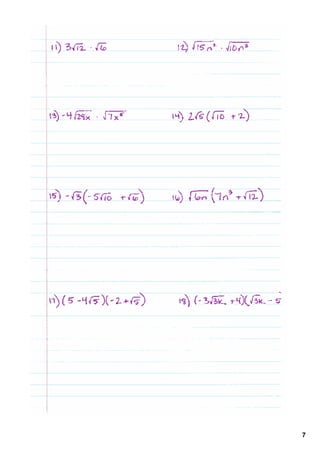 11) 3√12 · √6 12) √15n² · √10n³
13) -4√28x · √7x³ 14) 2√5(√10 + 2)
15) -√3(-5√10 + √6) 16) √6n(7n³ + √12)
17) (5 - 4√5)(-2 + √5) 18) (-3√3k + 4)(√3k - 5
7